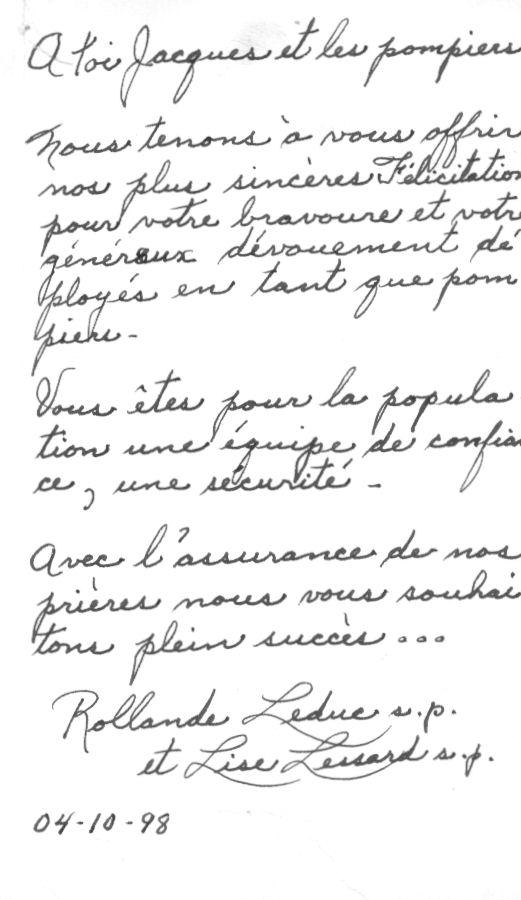 A toi Jacques et les pompiers
Nous tenons à vous offrir
nos plus sincères Félicitation
pour votre bravoure et votre
généreux dévouement dé
ployés en tant que pom
piers -
Vous êtes pour la popula
tion une équipe de confian
ce, une sécurité -
Avec l'assurance de nos
prières nous vous souhai
tons plein succès ...
Rollande Leduc s.p.
et Lise Lessard s.p.
04-10-98